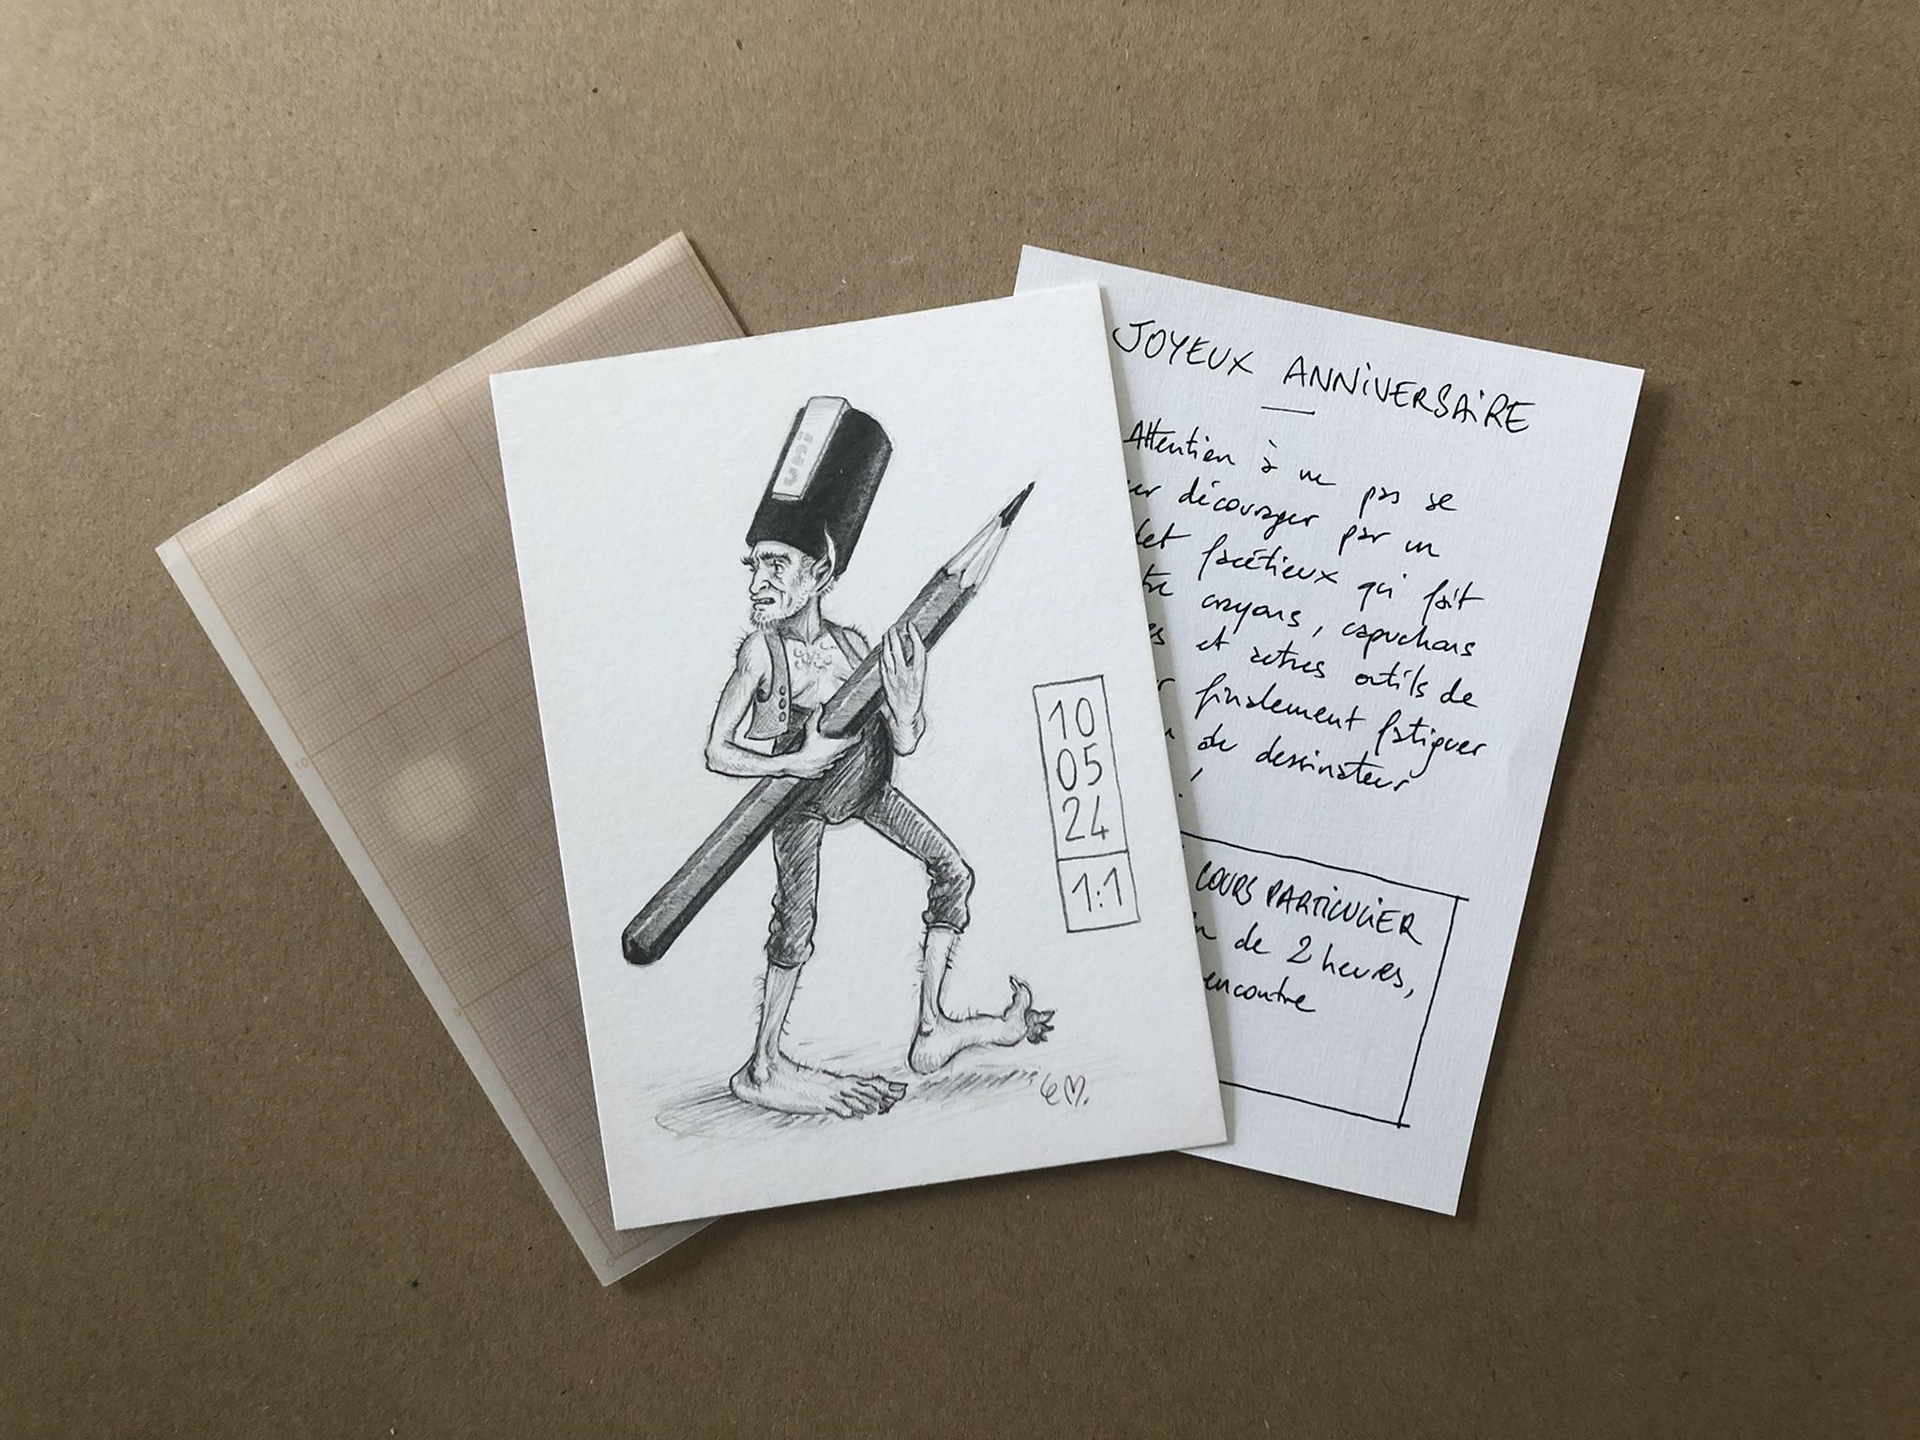 10
05
24
1:1
JOYEUX ANNiVERSAiRE
Attention à ne pas se
décourager par un
facétieux qui fait
crayons, capuchons
et autres outils de
finalement fatiguer
de dessinateur
!
COURS PARTiCULiER
de 2 heures,
encontre